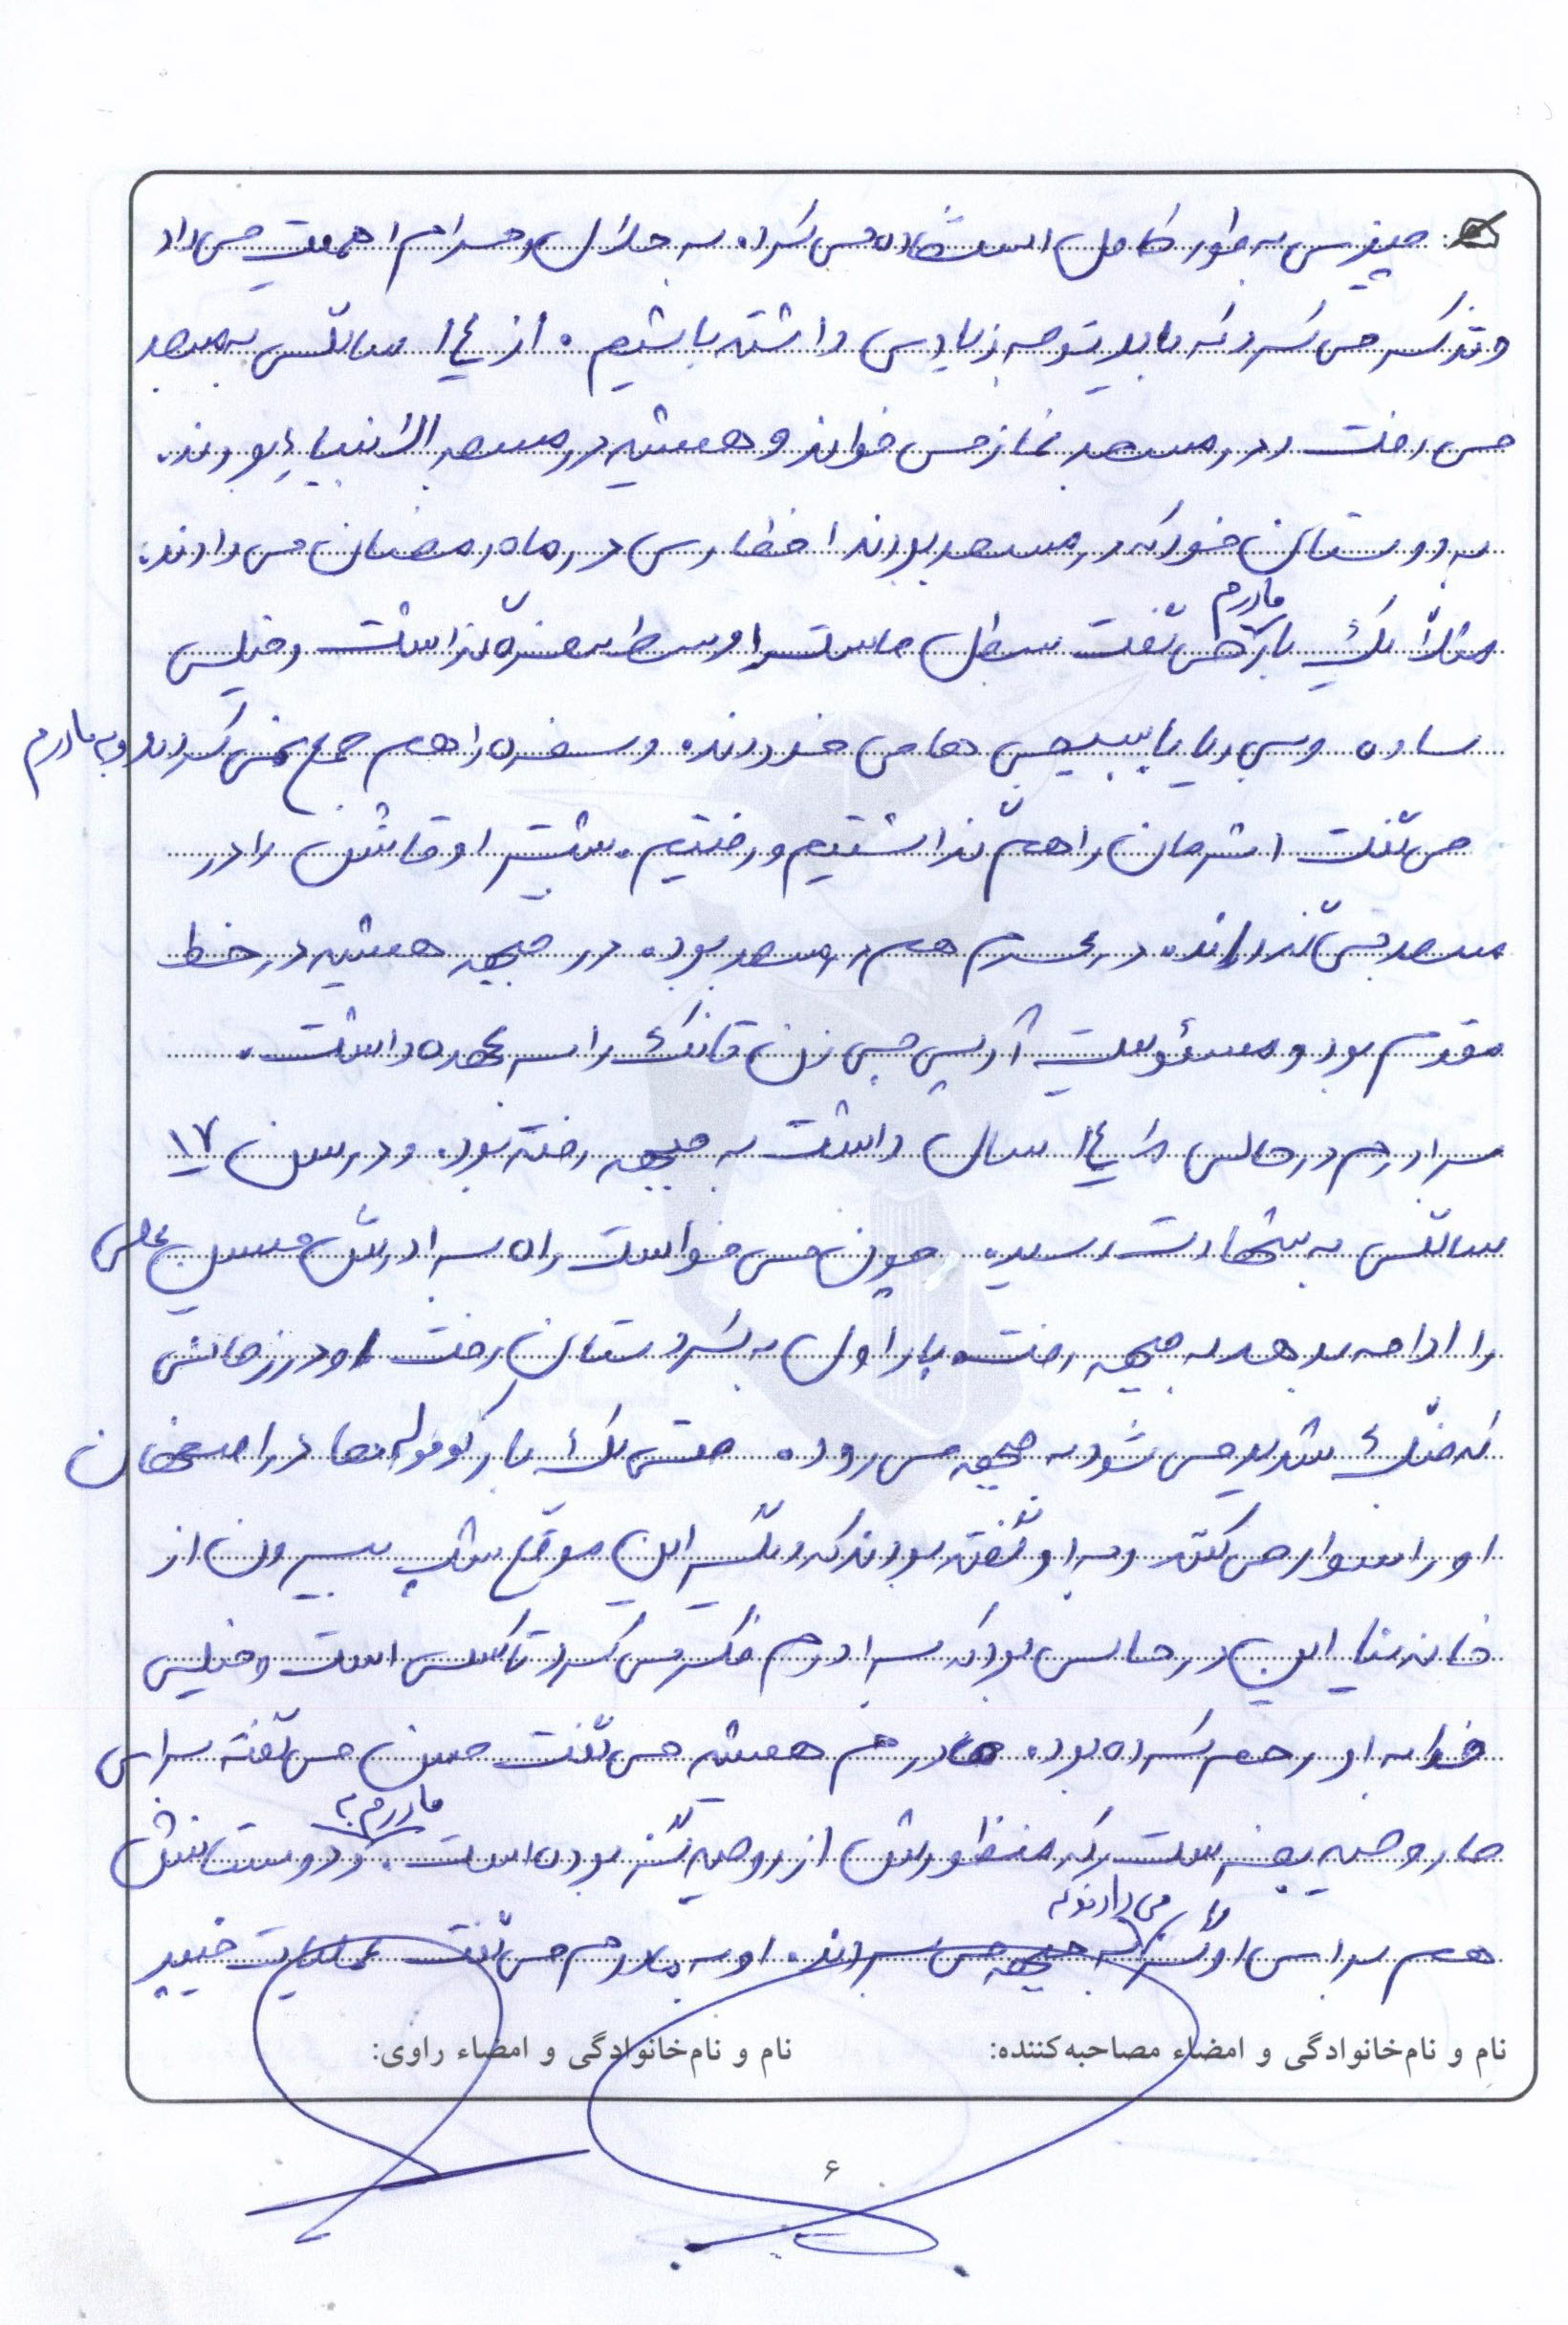 چیزی به طور کامل استفاده می کرد. به حلال و حرام اهمیت می داد
و تذکر می کرد که باید توجه زیادی داشته باشیم. از ۱۴ سالگی به مسجد
می رفت و در مسجد نماز می خواند و همیشه در مسجد الانبیاء بودند.
به دوستان خود که در مسجد بودند افطاری در ماه رمضان می دادند.
مثلاً یک بار مادرم می گفت سطل ماست را وسط سفره گذاشت و خیلی
ساده و بی ریا با بسیجی ها می خوردند. و سفره را هم جمع نمی کردند و به مادرم
می گفت اثرمان را هم گذاشتیم و رفتیم. بیشتر اوقاتش را در
مسجد می گذراند. در محرم هم در مسجد بود. در جبهه همیشه در خط
مقدم بود و مسئولیت آرپی جی زن تانک را به عهده داشت.
برادرم در حالی که ۱۴ سال داشت به جبهه رفته بود. و در سن ۱۷
سالگی به شهادت رسید. چون می خواست راه برادرش حسین علی
را ادامه بدهد به جبهه رفت. بار اول به کردستان رفت و در زمانی
که جنگ شدید می شود به جبهه می رود. حتی یک بار کومله ها در اصفهان
او را سوار می کنند و به او گفته بودند که دیگر این موقع شب بیرون از
خانه نیا این در حالی بود که برادرم فکر می کرد تاکسی است و خیلی
خدا به او رحم کرده بود. مادرم همیشه می گفت حسن می گفته برای
ما روحیه بفرست که منظورش از روحیه گز بوده است. مادرم به دوستانش
هم برای او گز می دادند که به جبهه می بردند. او به مادرم می گفت عملیات خیبر
نام و نام‌خانوادگی و امضاء مصاحبه‌کننده: نام و نام‌خانوادگی و امضاء راوی:
۶